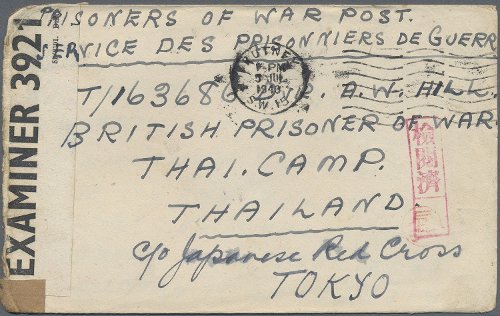 PRISONERS OF WAR POST.
SERVICE DES PRISONNIERS DE GUERR
T/163686 A.W. HILL.
BRITISH PRISONER OF WAR
THAI. CAMP.
THAILAND
c/o Japanese Red Cross
TOKYO
EXAMINER 3921
PUTNEY
PM
1943
S.W.15
検閲済